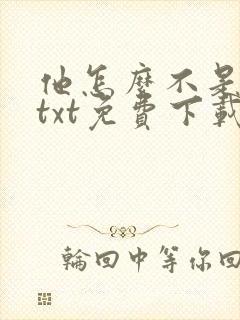 他怎麼不是
txt免費下載
輪回中等你回